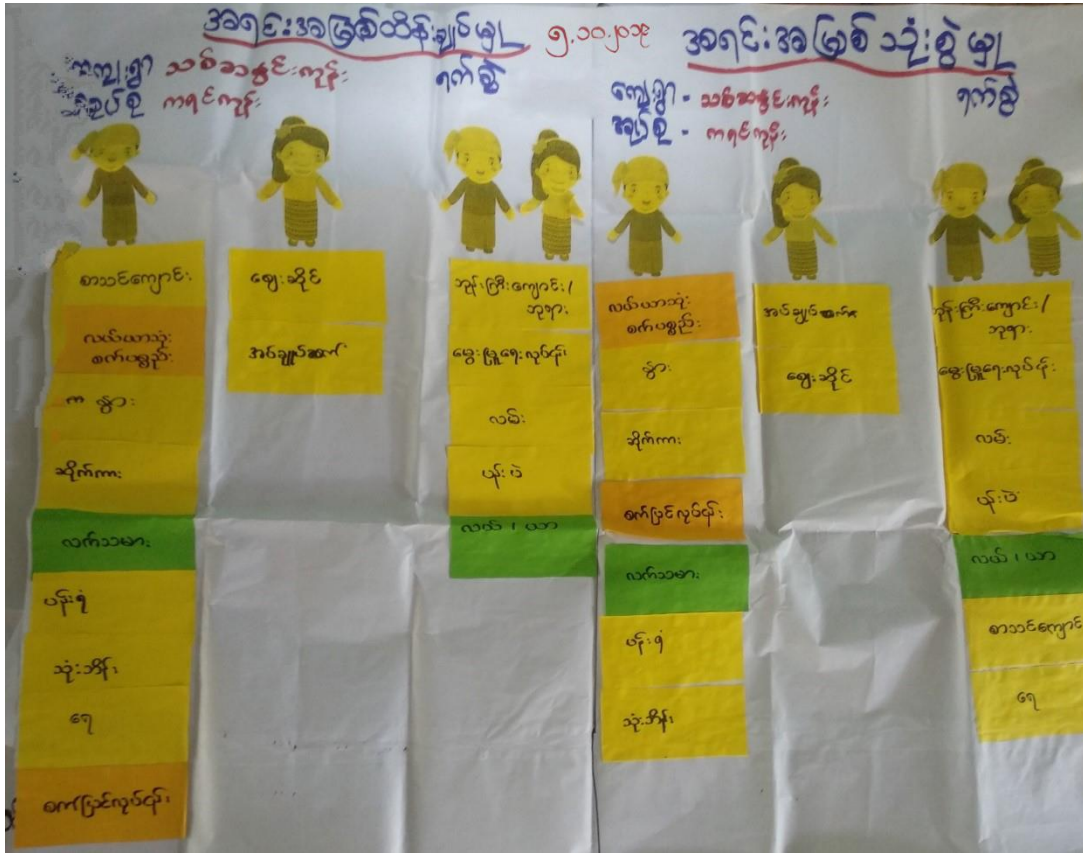 အရင်းအမြစ်ထိန်းချုပ်မှု
ကျေးရွာ သစ်ဆိမ့်ကုန်း ရက်စွဲ ၅.၁၀.၂၀၁၉
အုပ်စု ကရင်ကုန်း
စာသင်ကျောင်း
လယ်ယာသုံး
စက်ပစ္စည်း
နွား
ဆိုက်ကား
လက်သမား
ပန်းရံ
သုံးဘီး
ရေ
စက်ပြင်လုပ်ငန်း
ဈေးဆိုင်
အပ်ချုပ်စက်
ဘုန်းကြီးကျောင်း/
ဘုရား
မွေးမြူရေးလုပ်ငန်း
လမ်း
ပန်းပဲ
လယ် ၊ ယာ
အရင်းအမြစ် သုံးစွဲမှု
ကျေးရွာ - ရက်စွဲ
အုပ်စု - ကရင်ကုန်း
လယ်ယာသုံး
စက်ပစ္စည်း
နွား
ဆိုက်ကား
စက်ပြင်လုပ်ငန်း
လက်သမား
ပန်းရံ
သုံးဘီး
အပ်ချုပ်စက်
ဈေးဆိုင်
ဘုန်းကြီးကျောင်း/
ဘုရား
မွေးမြူရေးလုပ်ငန်း
လမ်း
ပန်းပဲ
လယ် ၊ ယာ
စာသင်ကျောင်း
ရေ